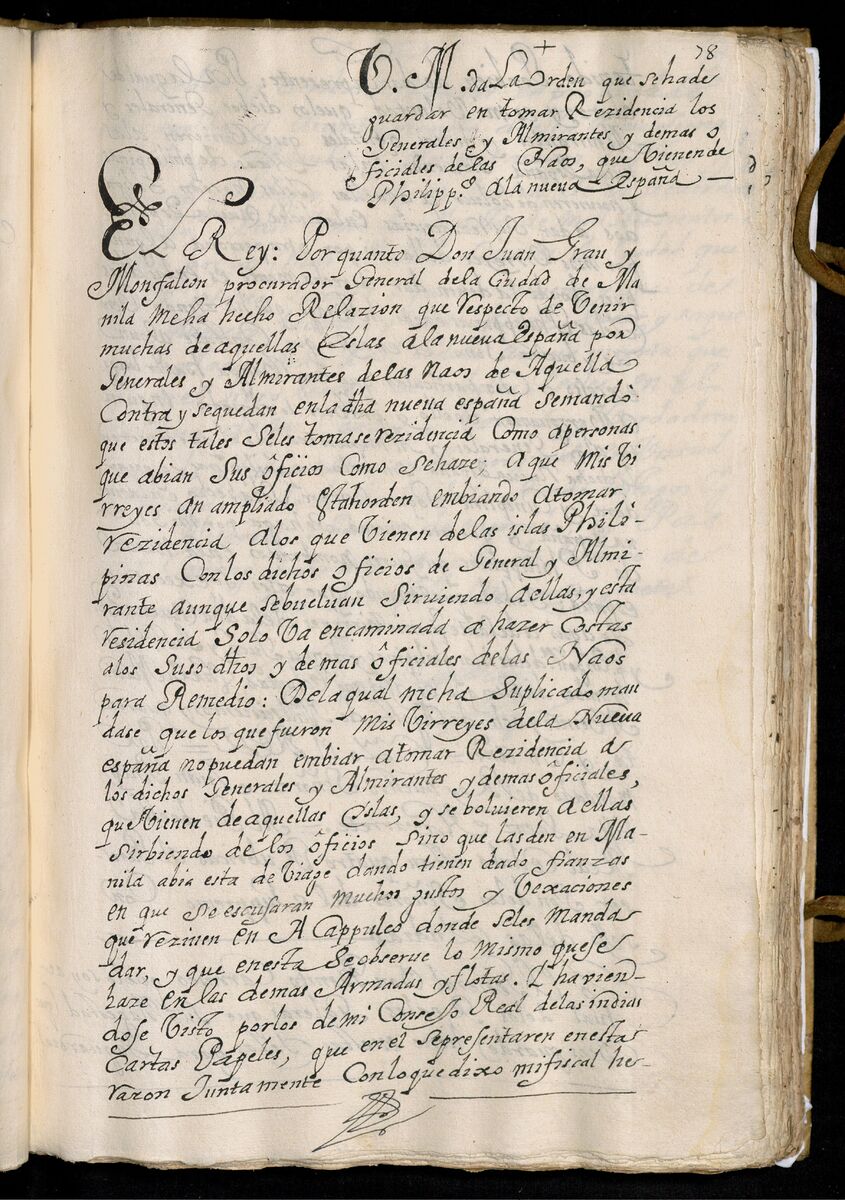 78
V. M. da La Orden que se ha de
guardar en tomar Rezidencia los
Generales y Almirantes y demas o
ficiales de las Naos, que Vienen de
Philipp.s a la nueva España —
EL Rey: Por quanto Don Juan Grau y
Monfalcon procurador General de la Ciudad de Ma
nila me ha hecho Relazion que respecto de Venir
muchas de aquellas Yslas a la nueva España por
Generales y Almirantes de las Naos de Aquella
Contra y se quedan en la dha nueva españa se mandò
que estos tales se les tomase rezidencia Como a personas
que abian Sus òficios Como se haze; a que Mis Vi
rreyes an ampliado Esta horden embiando atomar
rezidencia a los que Vienen de las islas Philî-
pinas Con los dichos oficios de General y Almi-
rante aunque se buelvan Sirviendo a ellas, y esta
residencia Solo Va encaminada a hazer Costas
a los Suso dhos y demas ôficiales de las Naos
para Remedio: De la qual me ha Suplicado man
dase que los que fueron Mis Virreyes de la Nueva
españa no puedan embiar atomar Rezidencia a
los dichos Generales y Almirantes y demas ôficiales,
que Vienen de aquellas Yslas, y se bolvieren a ellas
Sirbiendo de los ôficios Sino que las den en Ma-
nila abia esta de Viage dando tienen dado fianzas
en que se escusaran muchos gustos y Vexaciones
que reziven en ACappulco donde seles Manda
dar, y que en esta Se observe lo Mismo que se
haze en las demas Armadas y flotas. Y havien-
dose Visto por los de mi Consejo Real de las indias
Cartas Papeles, que en el se presentaren en estas
razon Juntamente Con lo que dixo mi fiscal he-